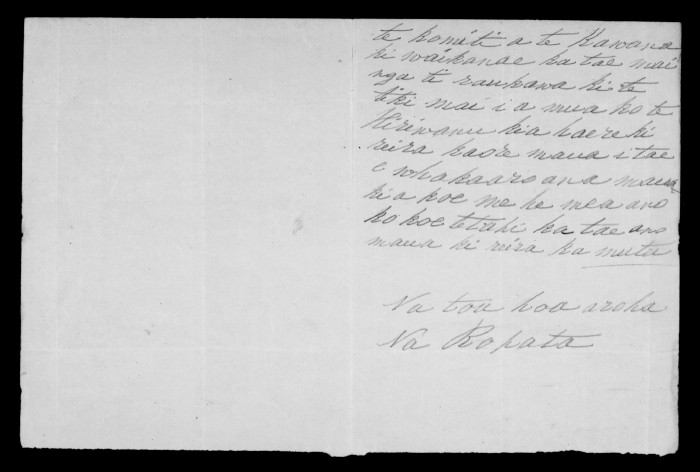 te komiti a te Kawana
ki waikanae ka tae mai
nga ti raukawa ki te
tiki mai i a maua ko te
Hiriwanu kia haere ki
reira kaore maua i tae
e whakaaro ana maua
ki a koe me he mea ano
ko koe tetahi ka tae ano
maua ki reira ka mutu
Na tou hoa aroha
Na Ropata